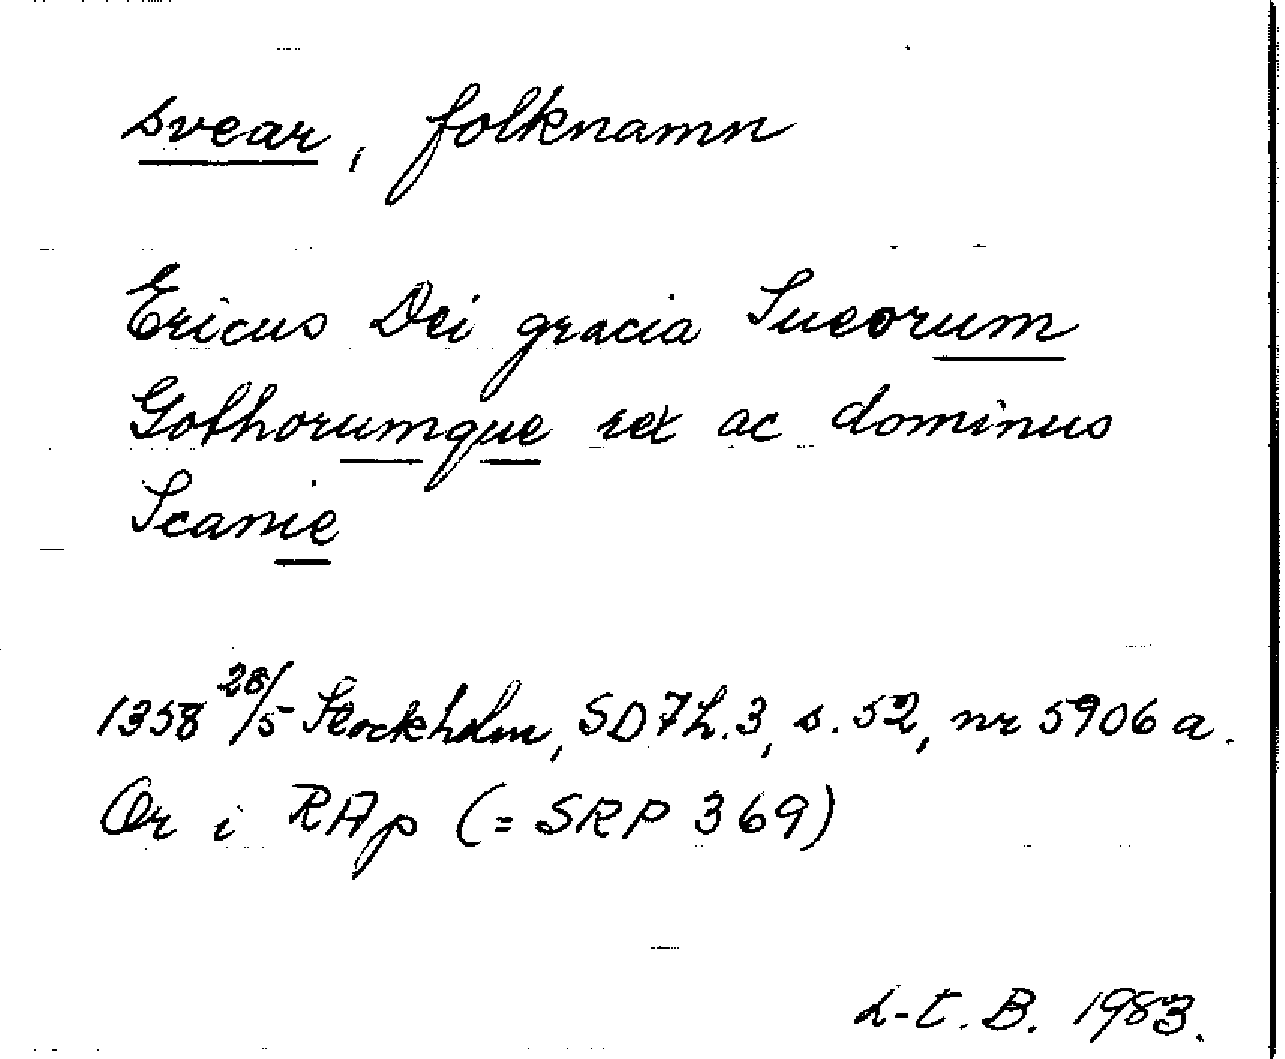 svear, folknamn
Ericus Dei gracia Sueorum
Gothorumque rex ac dominus
Scanie
1358 28/5 Stockholm, SD 7 h. 3, s. 52, nr 5906 a.
Or i RAp (= SRP 369)
L-E. B. 1983.